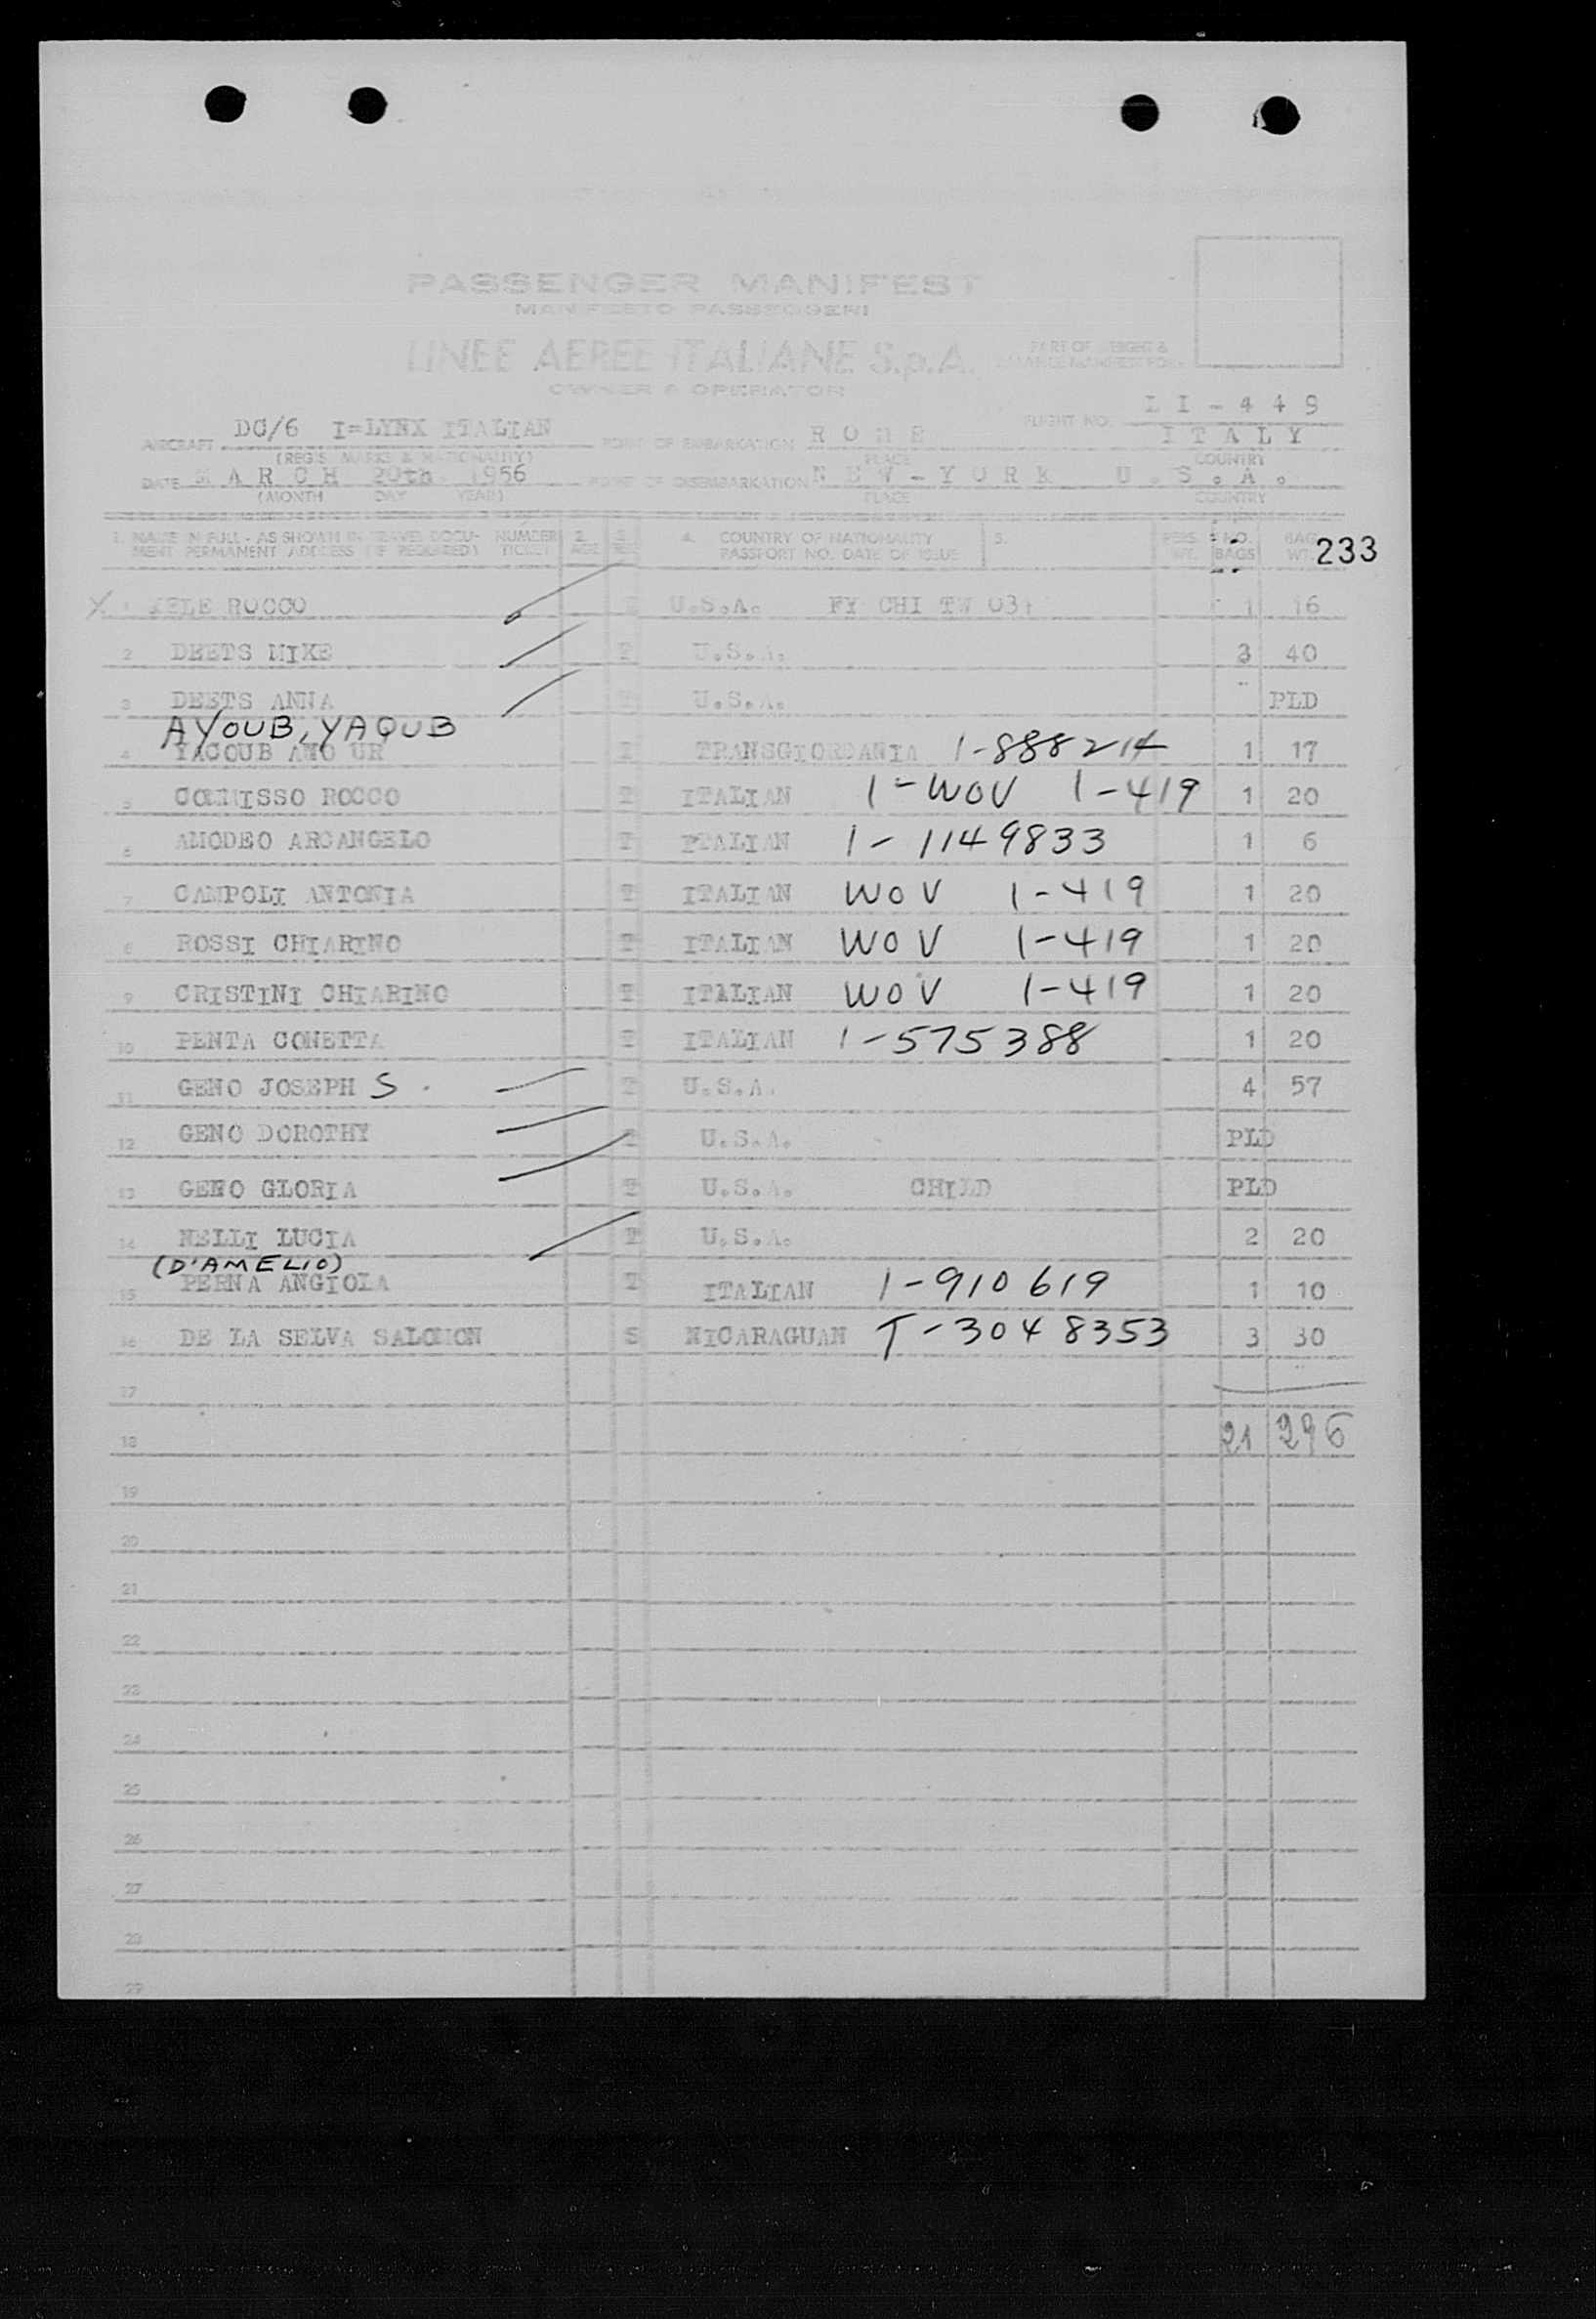 PASSENGER MANIFEST
MANIFESTO PASSEGGERI
LINEE AEREE ITALIANE S.p.A.
PART OF WEIGHT &
OWNER & OPERATOR
FLIGHT NO. LI-449
AIRCRAFT DC/6 I=LYNX ITALIAN POINT OF EMBARKATION ROME ITALY
(REGIS. MARKS & NATIONALITY) PLACE COUNTRY
DATE MARCH 20th. 1956 POINT OF DISEMBARKATION NEW-YORK U.S.A.
(MONTH DAY YEAR) PLACE COUNTRY
1. NAME IN FULL - AS SHOWN IN TRAVEL DOCU- NUMBER 2. 3. 4. COUNTRY OF NATIONALITY 5. PERS. NO. BAG
MENT PERMANENT ADDRESS (IF REQUIRED) TICKET AGE SEX PASSPORT NO. DATE OF ISSUE WT. BAGS WT. 233
X 1 ROCCO U.S.A. FY CHI TW 1 16
2 DEETS MIKE T U.S.A. 3 40
3 DEETS ANNA U.S.A. PLD
AYOUB, YAQUB
4 YACOUB TRANSGIORDANIA 1-888214 1 17
5 COMMISSO ROCCO T ITALIAN 1-WOV 1-419 1 20
6 AMODEO ARCANGELO T ITALIAN 1-1149833 1 6
7 CAMPOLI ANTONIA T ITALIAN WOV 1-419 1 20
8 ROSSI CHIARINO T ITALIAN WOV 1-419 1 20
9 CRISTINI CHIARINO T ITALIAN WOV 1-419 1 20
10 PENTA CONETTA T ITALIAN 1-575388 1 20
11 GENO JOSEPH S. T U.S.A. 4 57
12 GENO DOROTHY T U.S.A. PLD
13 GENO GLORIA T U.S.A. CHILD PLD
14 NELLI LUCIA T U.S.A. 2 20
(D'AMELIO)
15 PERNA ANGIOLA T ITALIAN 1-910619 1 10
16 DE LA SELVA SALOMON S NICARAGUAN T-3048353 3 30
17
18 21 296
19
20
21
22
23
24
25
26
27
28
29